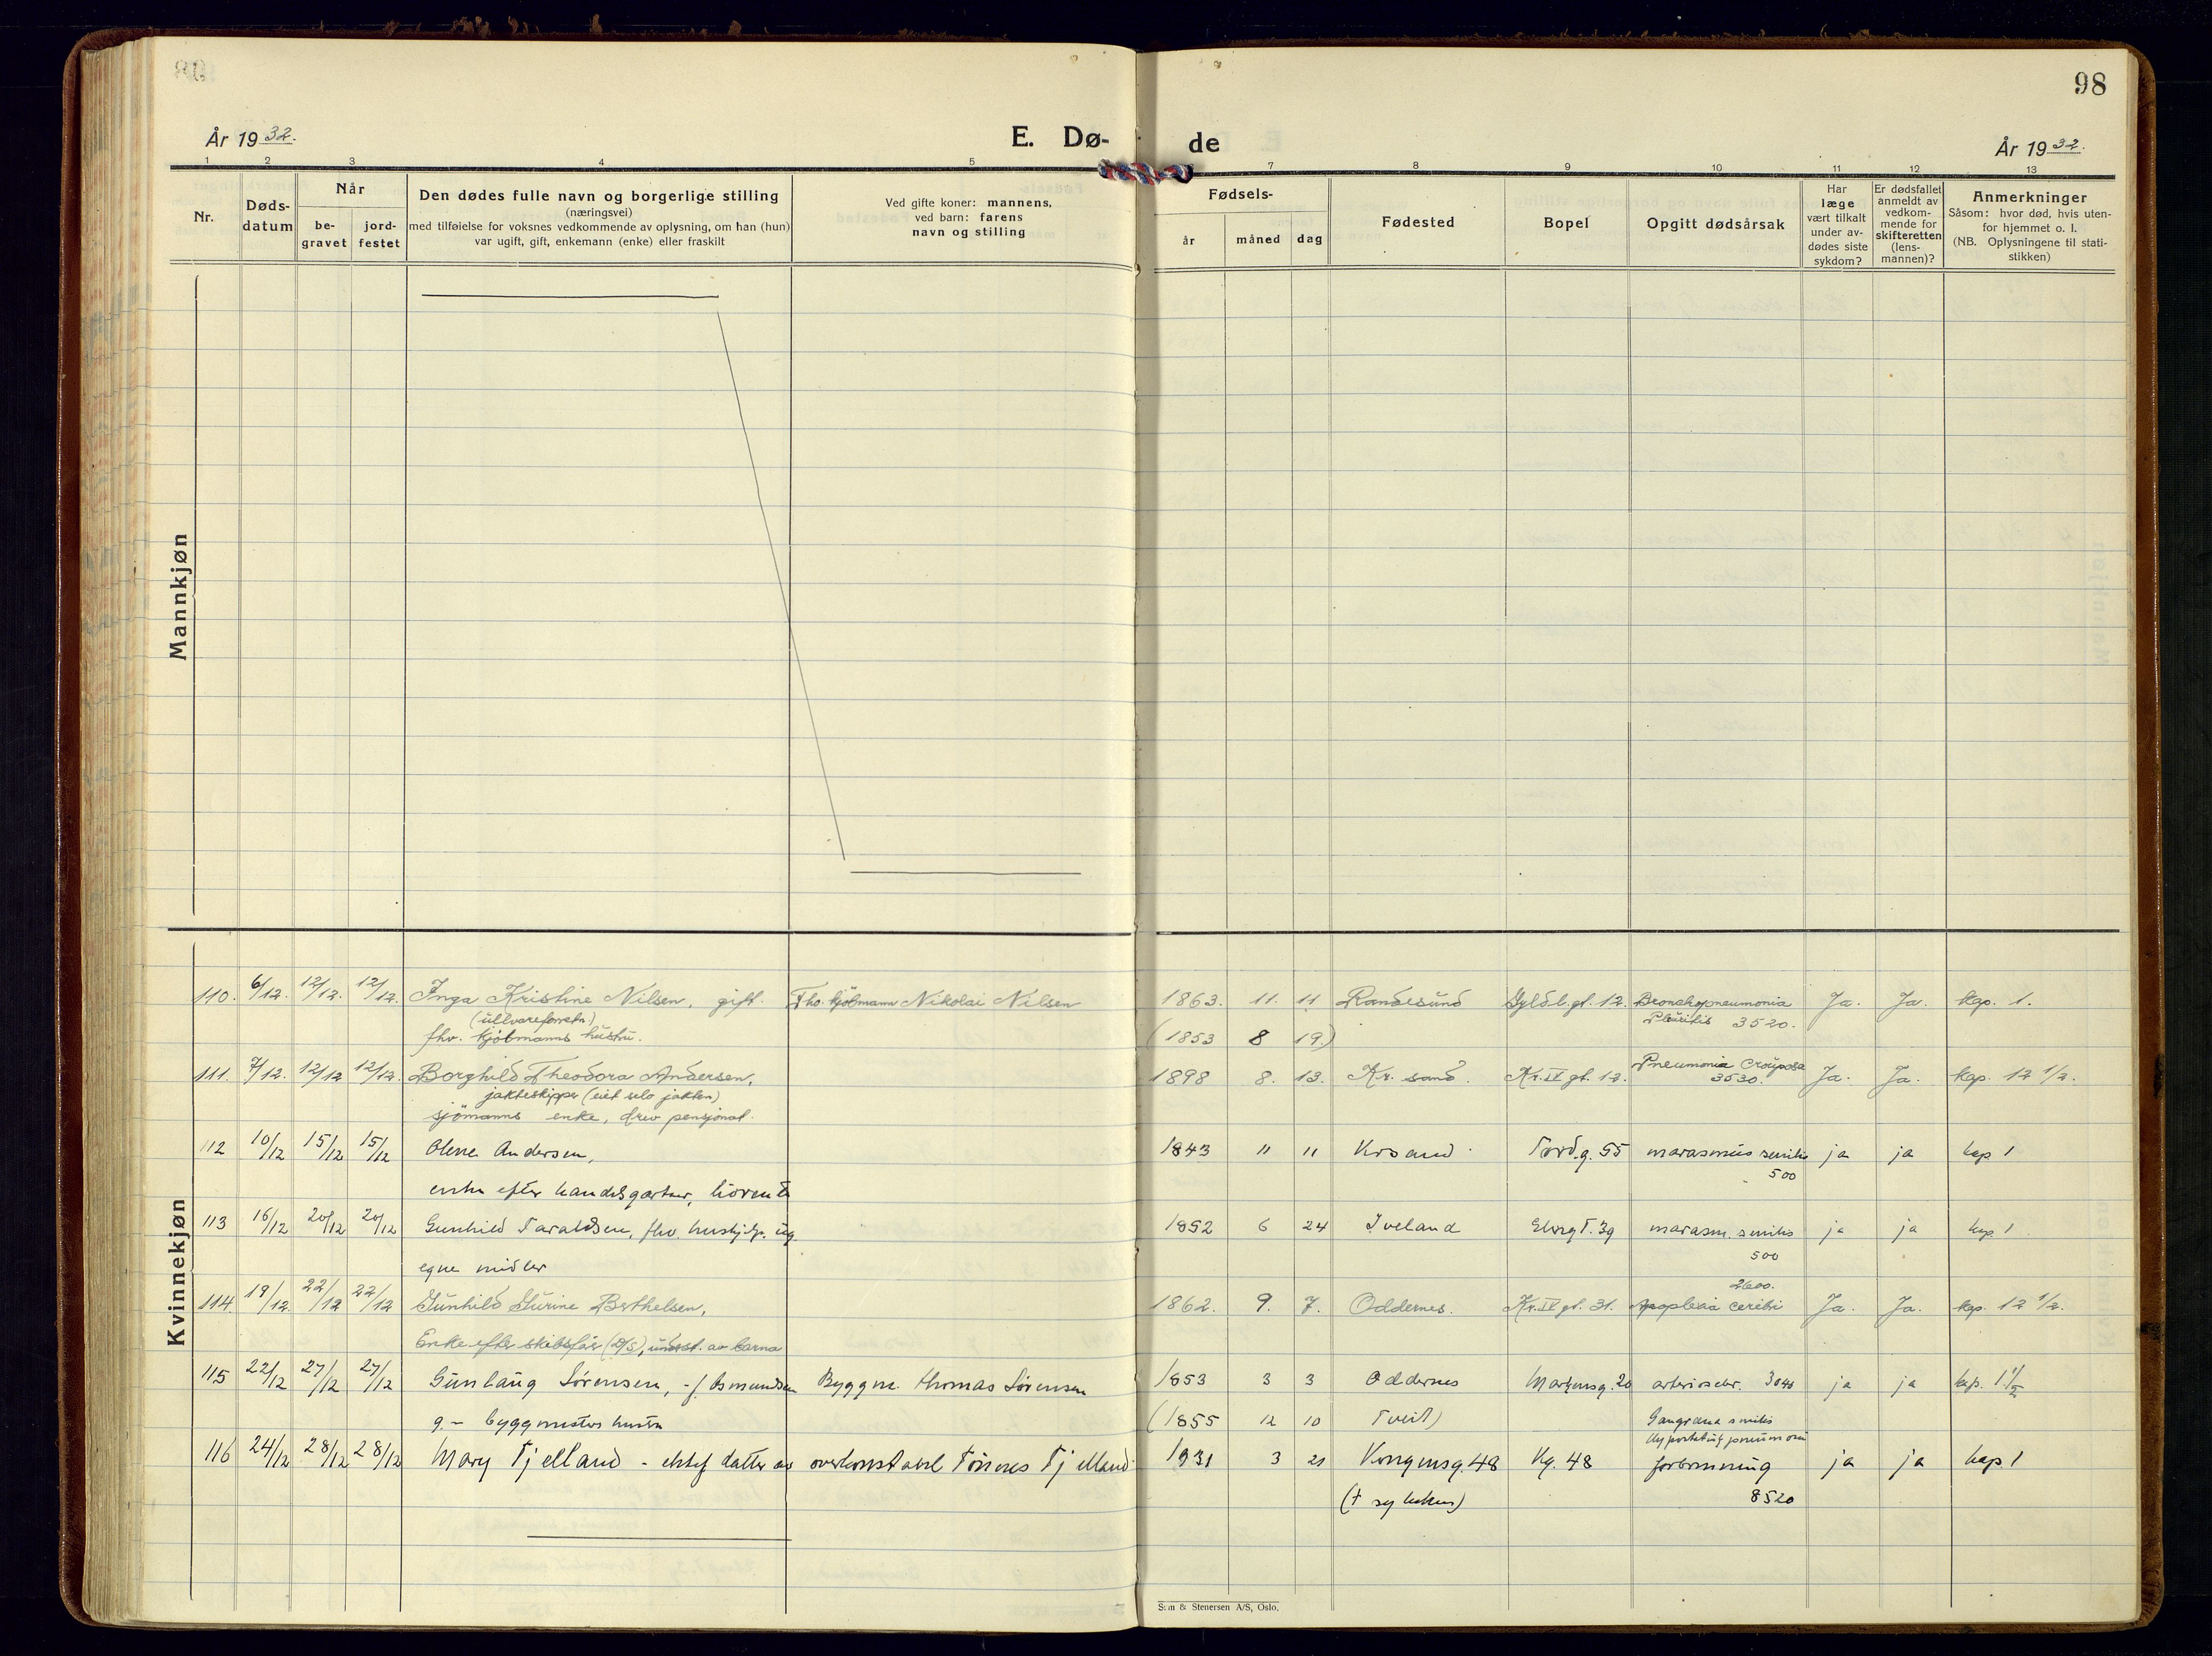 98
År 1932.
E. Dø-
de
År 1932.
1 2 3 4 5 7 8 9 10 11 12 13
Nr.
Døds-
datum
Når
be-
gravet
jord-
festet
Den dødes fulle navn og borgerlige stilling
(næringsvei)
med tilføielse for voksnes vedkommende av oplysning, om han (hun)
var ugift, gift, enkemann (enke) eller fraskilt
Ved gifte koner: mannens,
ved barn: farens
navn og stilling
Fødsels-
år
måned
dag
Fødested
Bopel
Opgitt dødsårsak
Har
læge
vært tilkalt
under av-
dødes siste
sykdom?
Er dødsfallet
anmeldt av
vedkom-
mende for
skifteretten
(lens-
mannen)?
Anmerkninger
Såsom: hvor død, hvis uten-
for hjemmet o. l.
(NB. Oplysningene til stati-
stikken)
Mannkjøn
Kvinnekjøn
110. 6/12. 12/12. 12/12. Inga Kristine Nilsen, gift. Fho. kjöbmann Nikolai Nilsen 1863. 11. 11 Randesund Gyldl. gt. 12. Bronchopneumonia Ja. Ja. kap. 1.
Pleuritis 3520.
fhv. kjöbmanns hustru. (1853 8 19.)
111. 7/12. 12/12 12/12. Borghild Theodora Andersen, 1898 8. 13. Kr. sand. Kr. IV gt. 12. Pneumonia Crouposa Ja. Ja. kap. 12 1/2.
3530.
jakteskipper (eiet selv jakten)
sjömanns enke, drev pensjonat.
112 10/12 15/12 15/12 Olene Andersen, 1843 11 11 Krsand Tord.g. 55 marasmus senilis ja ja kap 1
500
enke efter handelsgartner,
113 16/12 20/12 20/12 Gunhild Taraldsen, fhv. hushjelp. ug. 1852 6 24 Iveland 39 marasm. senilis ja ja kap. 1
500
egne midler
2600.
114. 19/12. 22/12 22/12 Gunhild Gurine Berthelsen, 1862. 9. 7. Oddernes. Kr. IV gt. 31. Apoplexia cerebi Ja. Ja. kap. 12 1/2.
Enke efter skibsfør (D/S), underst. av barna
115 22/12 27/12 27/12 Gunlaug Sørensen, - f. Osmundsen Byggm. Thomas Sørensen 1853 3 3 Oddernes Markensg. 20 arterioscler. 3040 ja ja kap. 1 1/2
g - byggmesters hustru (1855 12 10 Tveit) Gangræna senilis
pneumoni
116 24/12 28/12 28/12 Mary Tjelland - ektef datter av overkonstabel Tønnes Tjelland 1931 3 21 Kongensg. 48 Kg. 48 forbrenning ja ja kap 1
8520
(+ sykehus)
Sem & Stenersen A/S, Oslo.